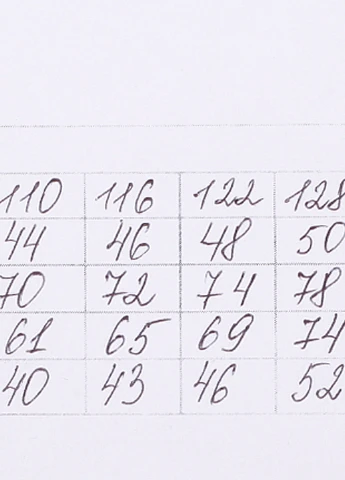 110 116 122 128
44 46 48 50
70 72 74 78
61 65 69 74
40 43 46 52